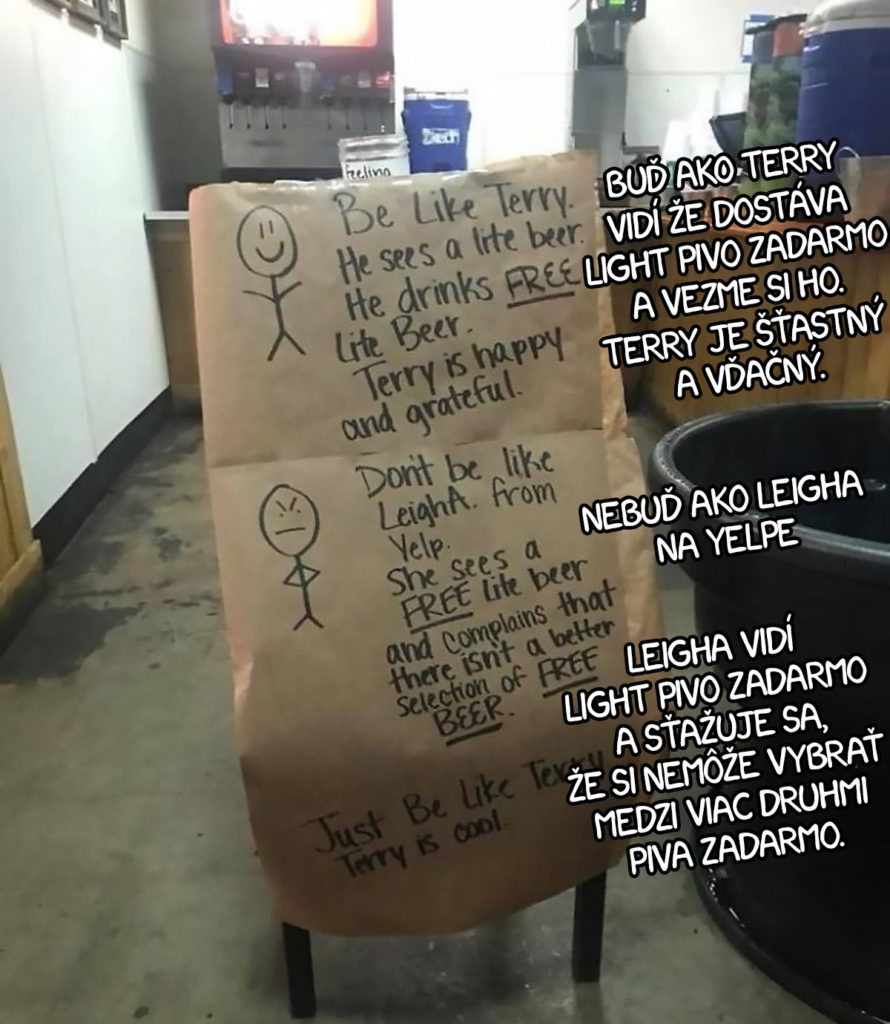 Feeling
Be Like Terry.
He sees a lite beer.
He drinks FREE
Lite Beer.
Terry is happy
and grateful.
Don't be like
LeighA. from
Yelp.
She sees a
FREE Lite beer
and complains that
there isn't a better
selection of FREE
BEER.
Just Be Like Terry
Terry is cool.
BUĎ AKO TERRY
VIDÍ ŽE DOSTÁVA
LIGHT PIVO ZADARMO
A VEZME SI HO.
TERRY JE ŠŤASTNÝ
A VĎAČNÝ.
NEBUĎ AKO LEIGHA
NA YELPE
LEIGHA VIDÍ
LIGHT PIVO ZADARMO
A SŤAŽUJE SA,
ŽE SI NEMÔŽE VYBRAŤ
MEDZI VIAC DRUHMI
PIVA ZADARMO.